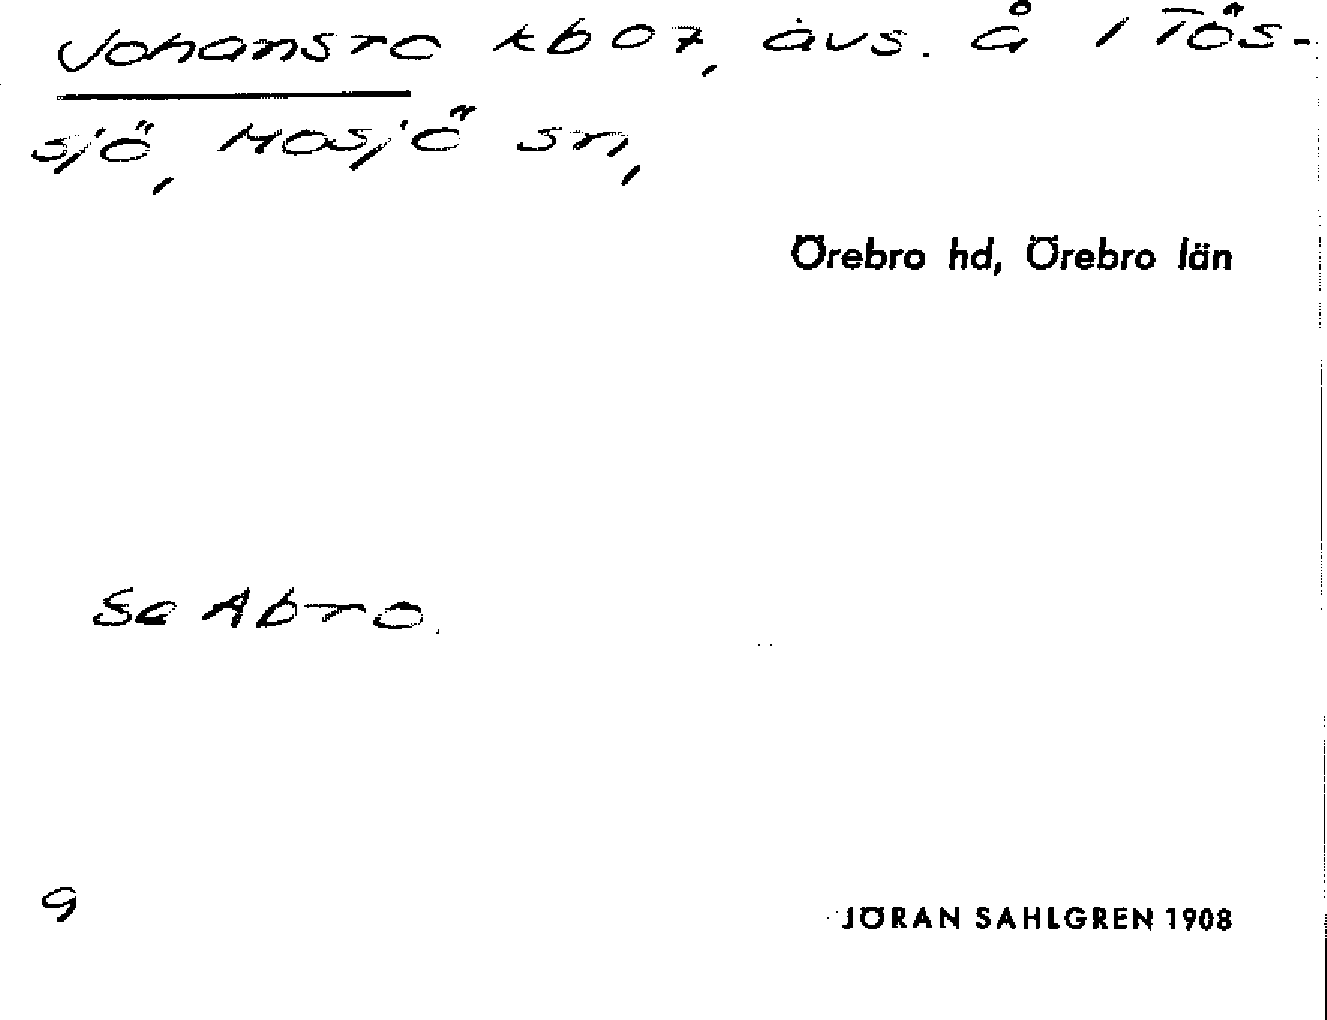 Johansro kb 07, avs. å 1 Tös-
sjö, Mosjö sn,
Örebro hd, Örebro län
Se Abro.
9
JÖRAN SAHLGREN 1908